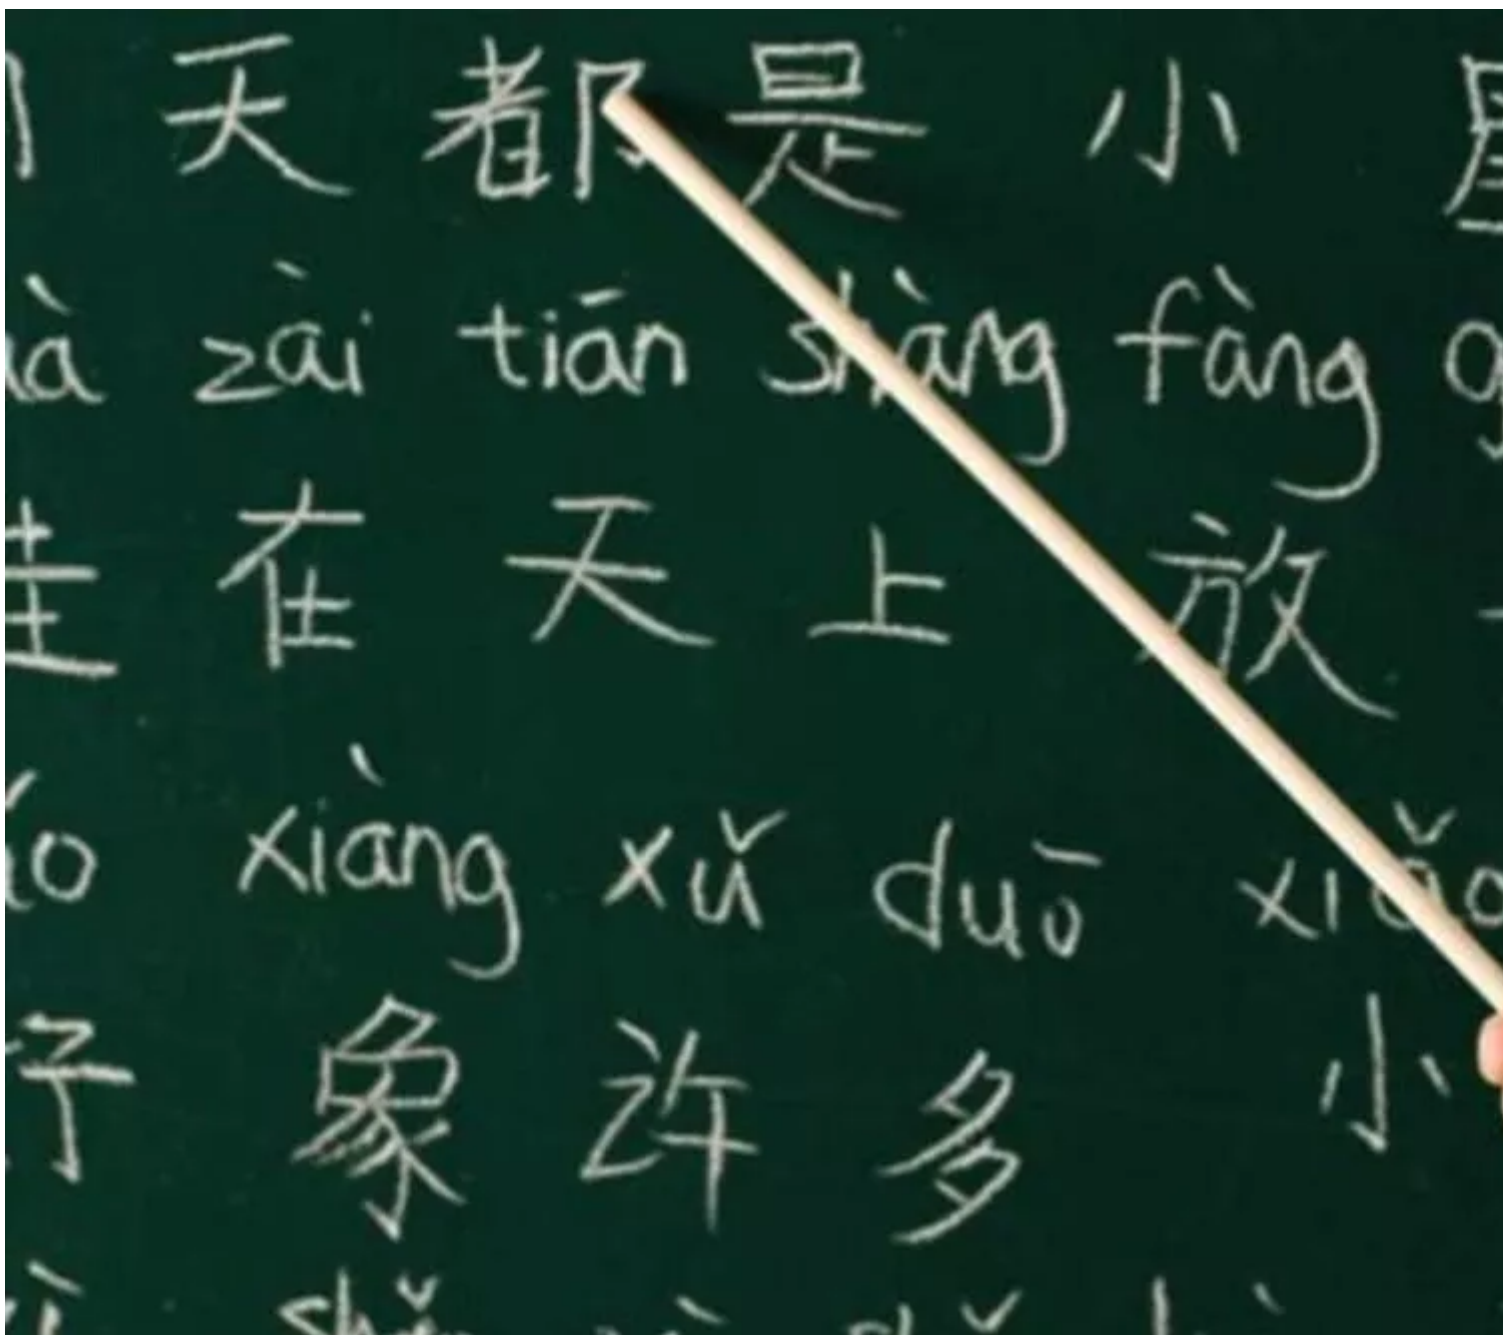 天 都 是 小
zài tiān shàng fàng
在 天 上 放
xiàng xǔ duō xiǎo
象 许 多 小